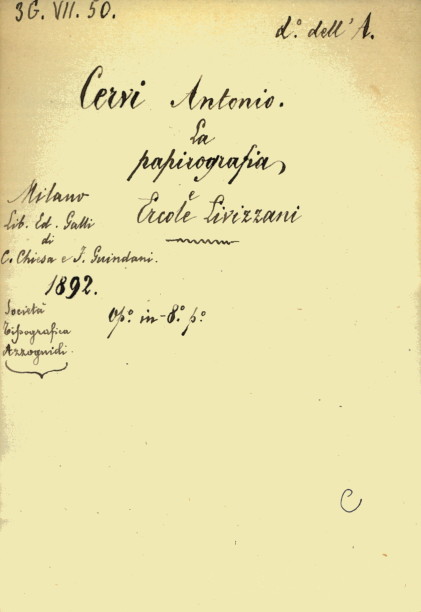 3G. VII. 50.
d.º dell'A.
Cervi Antonio.
La
papirografia
e
Ercole Livizzani
Milano
Lib. Ed. Galli
di
C. Chiesa e F. Guindani.
1892.
Società
Tipografica
Azzoguidi.
Op.º in-8.º p.º
C